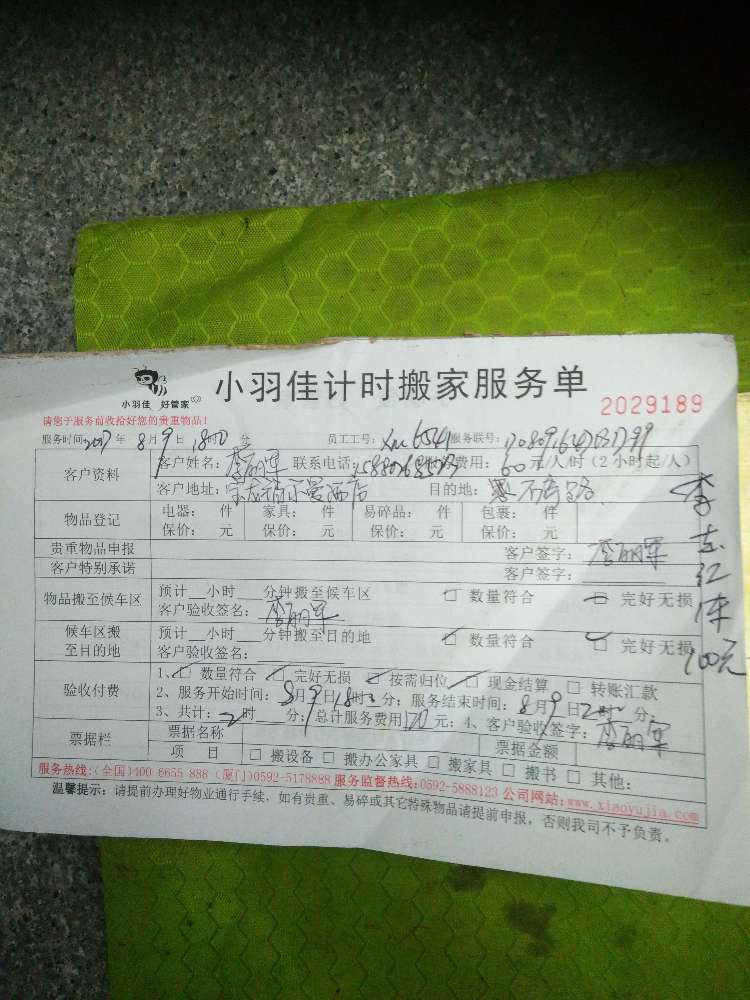 小羽佳 好管家
小羽佳计时搬家服务单
2029189
请您于服务前收拾好您的贵重物品!
服务时间2017年8月9日 员工工号: 6541服务联号:
客户资料 客户姓名:李丽军 联系电话: 费用:60元/人/时(2小时起/人)
客户地址: 目的地:
物品登记 电器: 件 家具: 件 易碎品: 件 包裹: 件
保价: 元 保价: 元 保价: 元 保价: 元
贵重物品申报 客户签字:李丽军
客户特别承诺 客户签字:
物品搬至候车区 预计__小时__分钟搬至候车区 数量符合 完好无损
客户验收签名:李丽军
候车区搬至目的地 预计__小时__分钟搬至目的地 数量符合 完好无损
客户验收签名:
验收付费 1、数量符合 完好无损 按需归位 现金结算 转账汇款
2、服务开始时间:8月9日18时 分;服务结束时间:8月9日 时 分;
3、共计:2时__分;总计服务费用120元;4、客户验收签字:李丽军
票据栏 票据名称 票据金额
项 目 搬设备 搬办公家具 搬家具 搬书 其他:
服务热线:(全国)400 6655 888 (厦门)0592-5178888 服务监督热线:0592-5888123 公司网站:www.xiaoyujia.com
温馨提示:请提前办理好物业通行手续,如有贵重、易碎或其它特殊物品请提前申报,否则我司不予负责。
100元